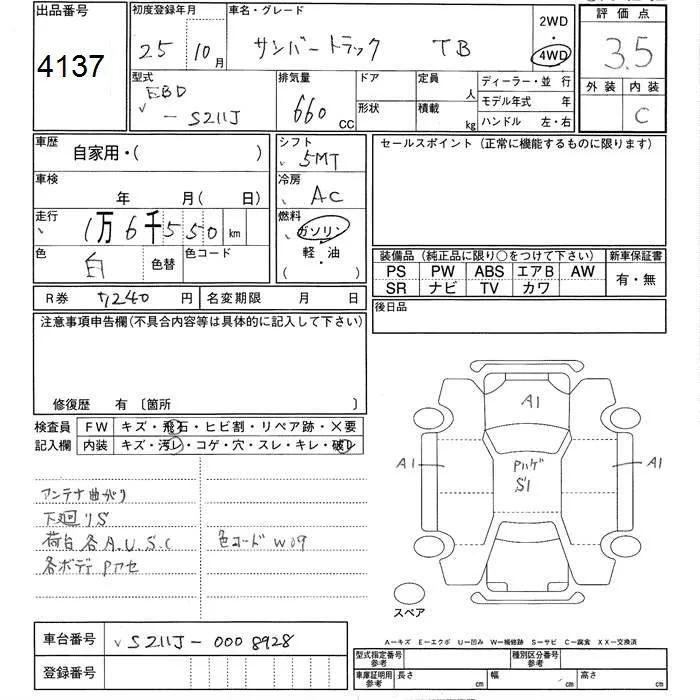 出品番号
4137
初度登録年月
25 10月
車名・グレード
サンバートラック TB
2WD
・
4WD
評価点
3.5
外装 内装
C
型式
EBD
- S211J
排気量
660 CC
ドア
形状
定員
人
積載
kg
ディーラー・並 行
モデル年式 年
ハンドル 左・右
車歴
自家用・( )
シフト
5MT
セールスポイント (正常に機能するものに限ります)
車検
年 月( 日)
冷房
AC
走行
1万6千550km
燃料
ガソリン
軽・油
( )
色
白
色替
色コード
装備品 (純正品に限り○をつけて下さい)
新車保証書
PS PW ABS エアB AW
有・無
SR ナビ TV カワ
R券 5,240円
名変期限 月 日
後日品
注意事項申告欄(不具合内容等は具体的に記入して下さい)
修復歴 有 〔箇所 〕
検査員
記入欄
FW キズ・飛石・ヒビ割・リペア跡・X要
内装 キズ・汚し・コゲ・穴・スレ・キレ・破レ
アンテナ曲がり
下廻りS
荷台各A.U.S.C
色コード W09
各ボディPアセ
A1
A1
Pハゲ
S1
A1
スペア
車台番号
S211J-0008928
登録番号
A-キズ E-エクボ U-凹み W-補修跡 S-サビ C-腐食 XX-交換済
型式指定番号
参考
種別区分番号
参考
車庫証明用
参考
長さ cm
幅 cm
高さ cm